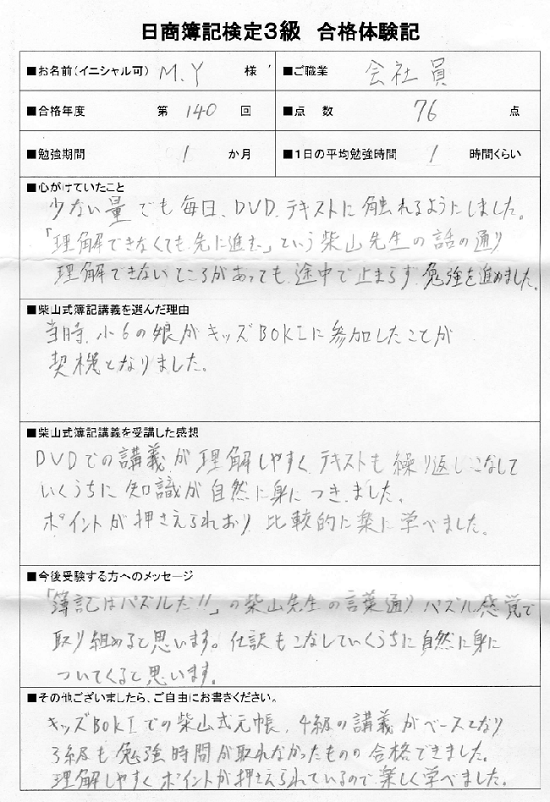 日商簿記検定3級 合格体験記
■お名前(イニシャル可) M.Y 様 ■ご職業 会社員
■合格年度 第 140 回 ■点 数 76 点
■勉強期間 1 か月 ■1日の平均勉強時間 1 時間くらい
■心がけていたこと
少ない量でも毎日、DVD、テキストに触れるようにしました。
「理解できなくても先に進む」という柴山先生の話の通り
理解できないところがあっても途中で止まらず勉強を進めました。
■柴山式簿記講義を選んだ理由
当時、小6の娘がキッズBOKIに参加したことが
契機となりました。
■柴山式簿記講義を受講した感想
DVDでの講義が理解しやすく、テキストも繰り返しこなして
いくうちに知識が自然に身につきました。
ポイントが押さえられおり 比較的に楽に学べました。
■今後受験する方へのメッセージ
「簿記はパズルだ!!」の柴山先生の言葉通り パズル感覚で
取り組めると思います。仕訳もこなしていくうちに自然に身に
ついてくると思います。
■その他ございましたら、ご自由にお書きください。
キッズBOKIでの柴山式元帳、4級の講義がベースとなり
3級も勉強時間が取れなかったものの合格できました。
理解しやすくポイントが押さえられているので楽しく学べました。